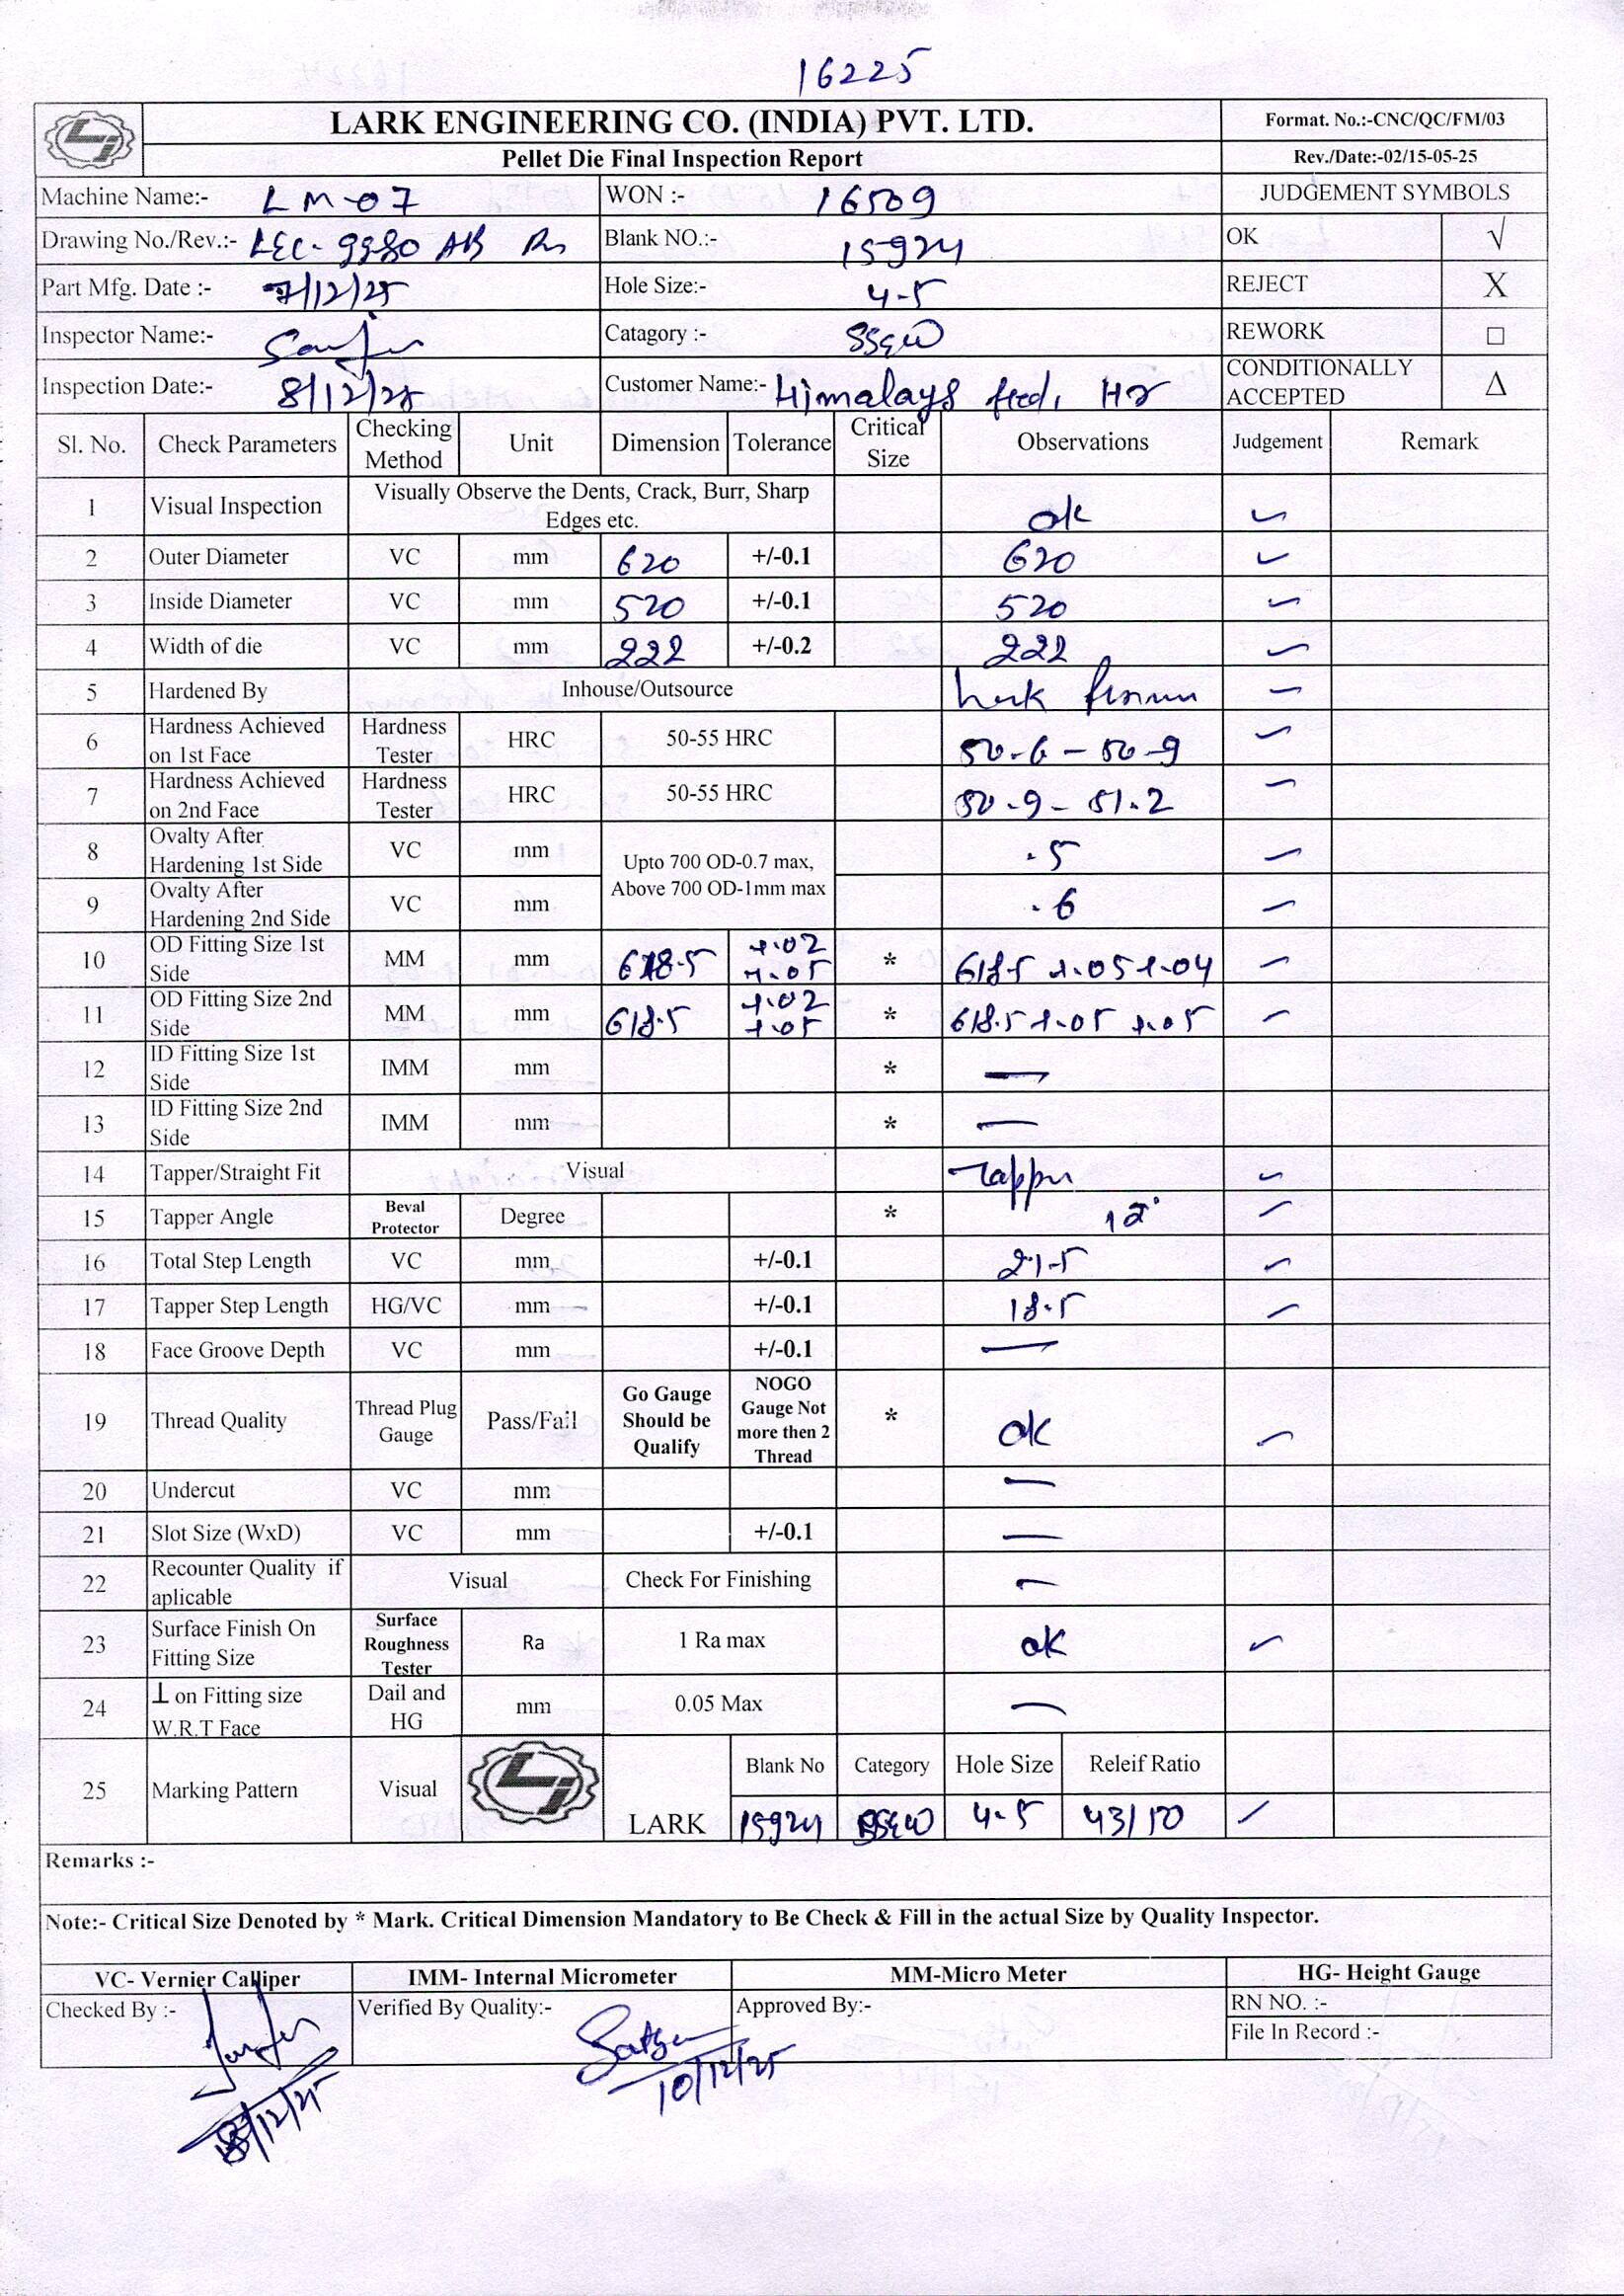 16225
LARK ENGINEERING CO. (INDIA) PVT. LTD.
Format. No.:-CNC/QC/FM/03
Pellet Die Final Inspection Report
Rev./Date:-02/15-05-25
Machine Name:- LM-07 WON :- 16509 JUDGEMENT SYMBOLS
Drawing No./Rev.:- LEC-9980 AB Blank NO.:- 15924 OK √
Part Mfg. Date :- 7/12/25 Hole Size:- 4.5 REJECT X
Inspector Name:- Catagory :- REWORK □
Inspection Date:- 8/12/25 Customer Name:- Himalays feed, Hr CONDITIONALLY ACCEPTED Δ
Sl. No. Check Parameters Checking Method Unit Dimension Tolerance Critical Size Observations Judgement Remark
1 Visual Inspection Visually Observe the Dents, Crack, Burr, Sharp Edges etc. ok ✓
2 Outer Diameter VC mm 620 +/-0.1 620 ✓
3 Inside Diameter VC mm 520 +/-0.1 520 ✓
4 Width of die VC mm 222 +/-0.2 222 ✓
5 Hardened By Inhouse/Outsource ✓
6 Hardness Achieved on 1st Face Hardness Tester HRC 50-55 HRC 50.6 - 50.9 ✓
7 Hardness Achieved on 2nd Face Hardness Tester HRC 50-55 HRC 50.9 - 51.2 ✓
8 Ovalty After Hardening 1st Side VC mm Upto 700 OD-0.7 max, Above 700 OD-1mm max .5 ✓
9 Ovalty After Hardening 2nd Side VC mm .6 ✓
10 OD Fitting Size 1st Side MM mm 618.5 +.02 +.05 * 618.5 +.05 +.04 ✓
11 OD Fitting Size 2nd Side MM mm 618.5 +.02 +.05 * 618.5 +.05 +.05 ✓
12 ID Fitting Size 1st Side IMM mm * —
13 ID Fitting Size 2nd Side IMM mm * —
14 Tapper/Straight Fit Visual Tapper ✓
15 Tapper Angle Beval Protector Degree * 12° ✓
16 Total Step Length VC mm +/-0.1 21.5 ✓
17 Tapper Step Length HG/VC mm +/-0.1 18.5 ✓
18 Face Groove Depth VC mm +/-0.1 —
19 Thread Quality Thread Plug Gauge Pass/Fail Go Gauge Should be Qualify NOGO Gauge Not more then 2 Thread * ok ✓
20 Undercut VC mm —
21 Slot Size (WxD) VC mm +/-0.1 —
22 Recounter Quality if aplicable Visual Check For Finishing —
23 Surface Finish On Fitting Size Surface Roughness Tester Ra 1 Ra max ok ✓
24 ⊥ on Fitting size W.R.T Face Dail and HG mm 0.05 Max —
25 Marking Pattern Visual LARK Blank No Category Hole Size Releif Ratio
15924 4.5 43/50 ✓
Remarks :-
Note:- Critical Size Denoted by * Mark. Critical Dimension Mandatory to Be Check & Fill in the actual Size by Quality Inspector.
VC- Vernier Calliper IMM- Internal Micrometer MM-Micro Meter HG- Height Gauge
Checked By :- Verified By Quality:- Approved By:- RN NO. :-
File In Record :-
10/12/25
8/12/25